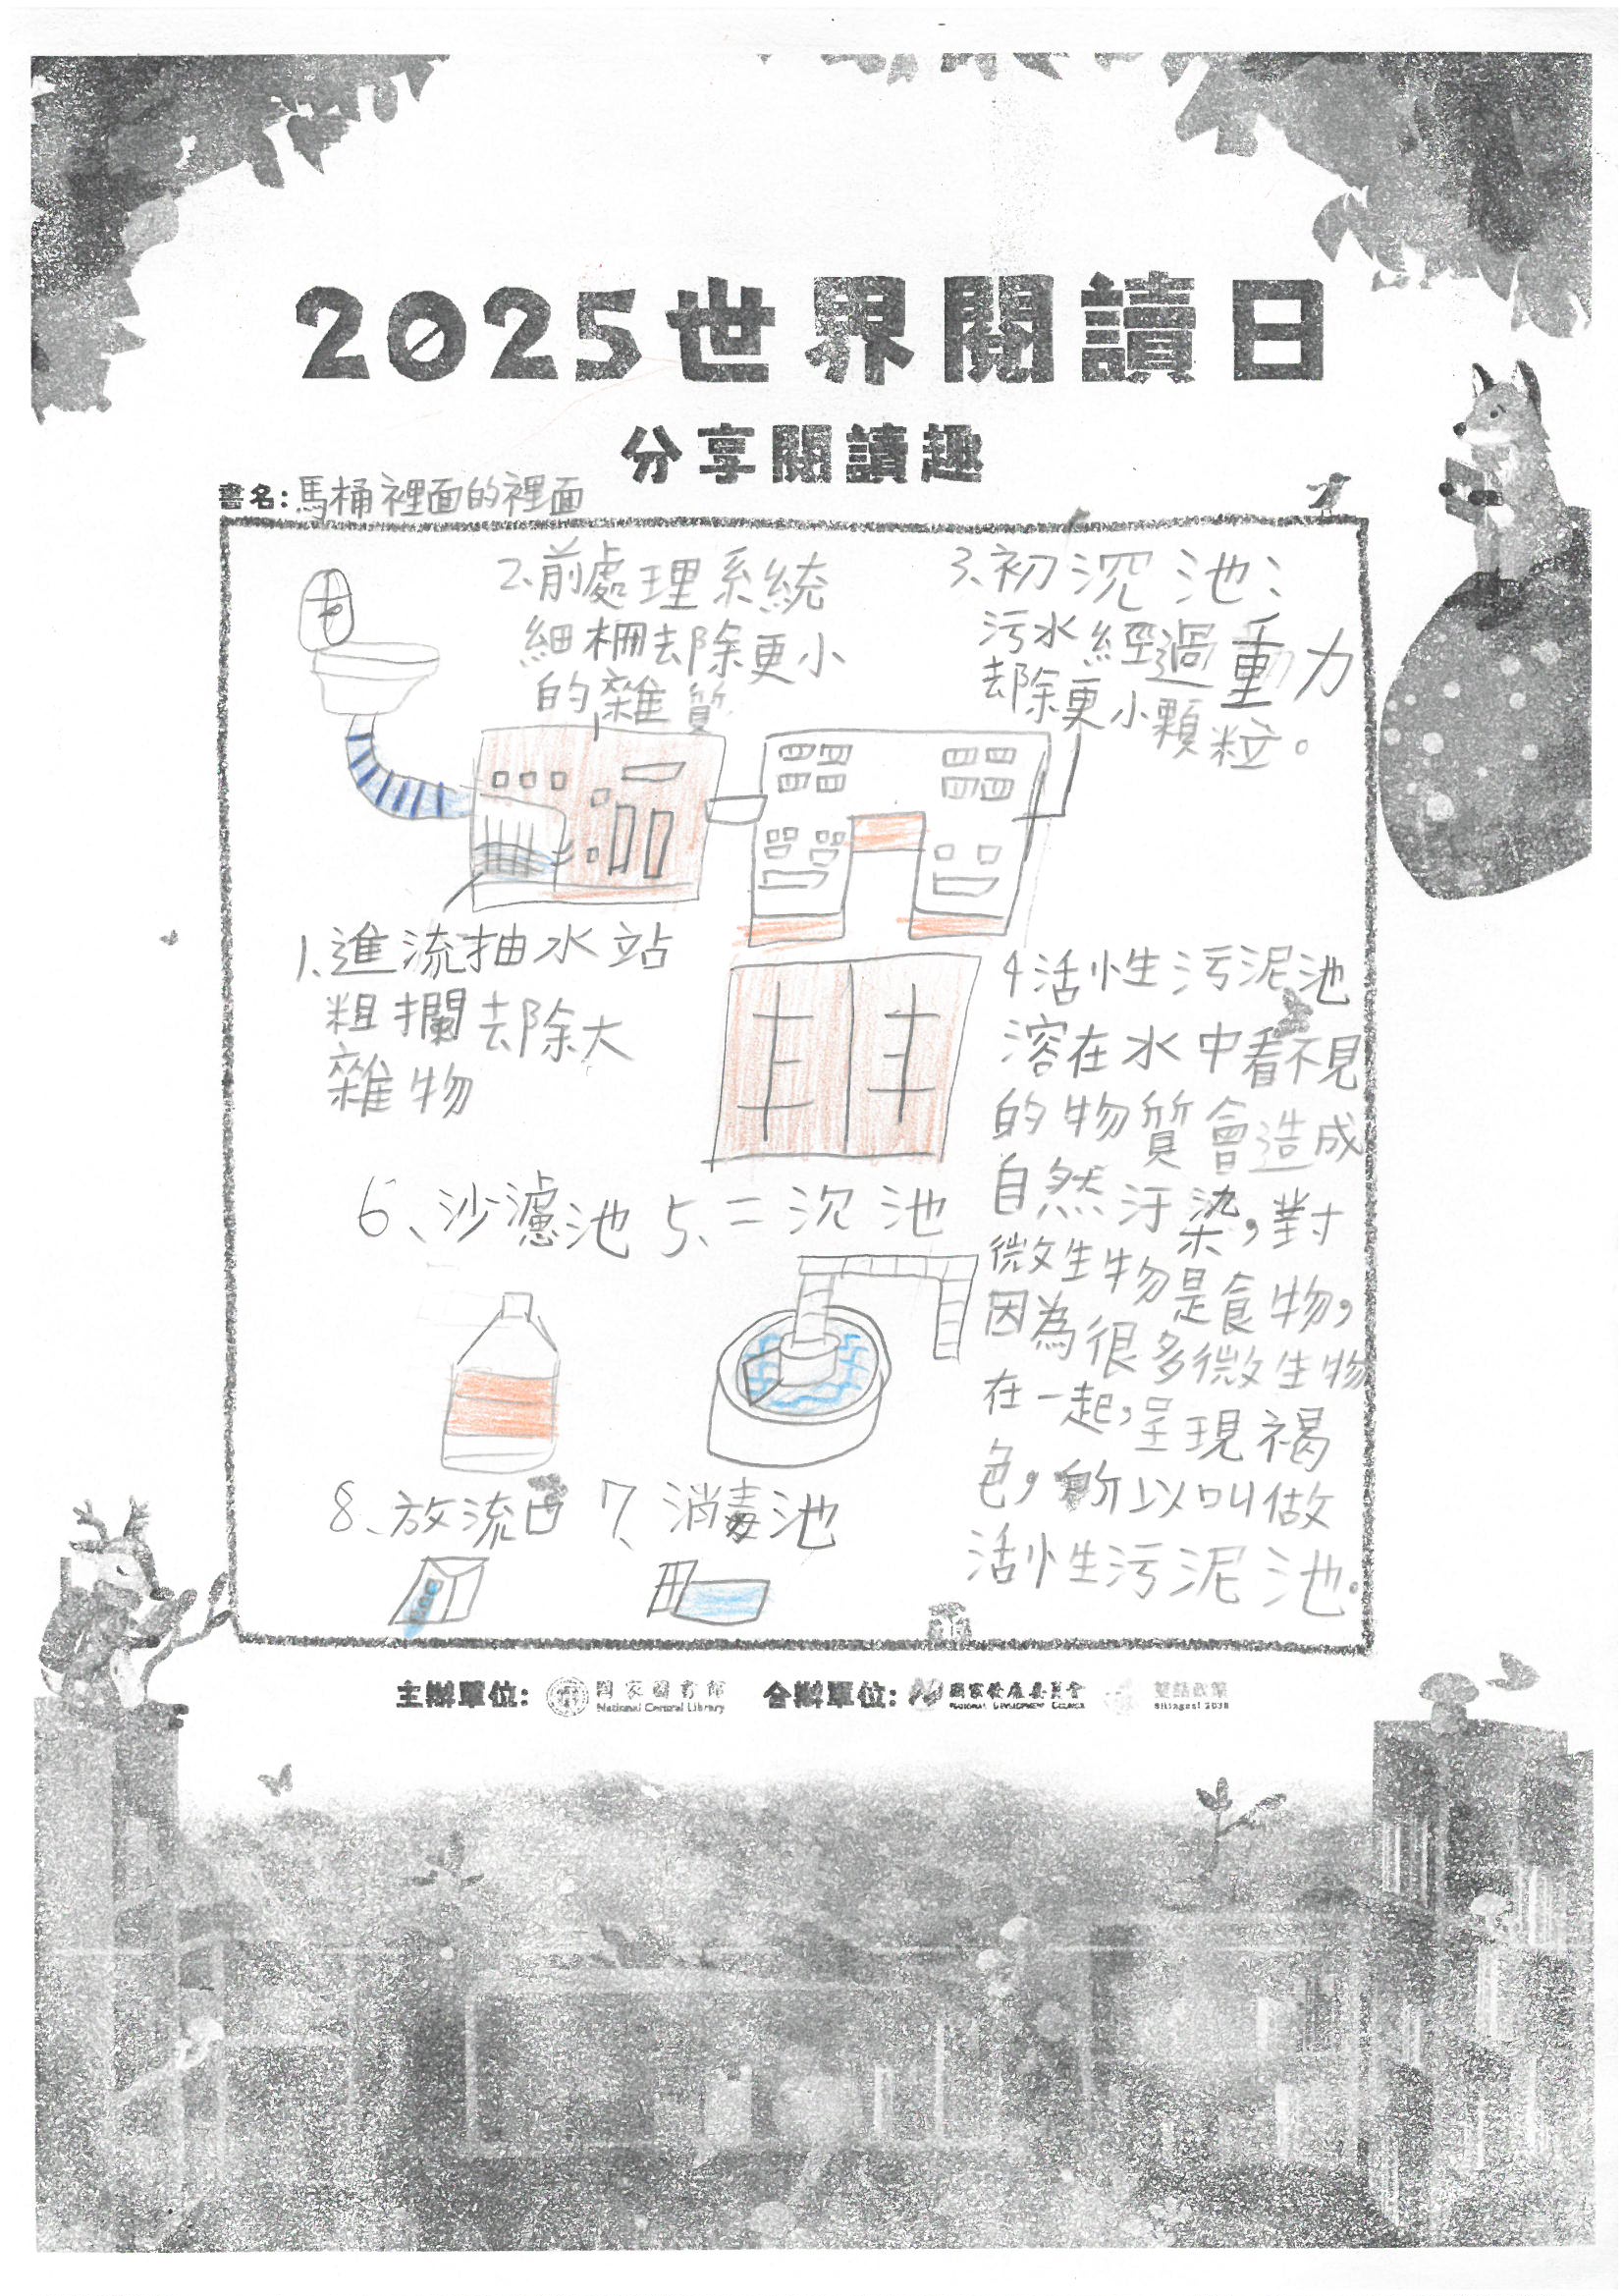 2025世界閱讀日
分享閱讀趣
書名:馬桶裡面的裡面
2、前處理系統
細柵去除更小
的雜質
3、初沉池:
污水經過重力
去除更小顆粒。
1、進流抽水站
粗攔去除大
雜物
4活性污泥池
溶在水中看不見
的物質會造成
自然汙染,對
微生物是食物,
因為很多微生物
在一起,呈現褐
色,所以叫做
活性污泥池。
6、沙濾池
5、二沉池
8、放流口
7、消毒池
主辦單位:
國家圖書館
National Central Library
合辦單位:
國家發展委員會
National Development Council
雙語政策
Bilingual 2030